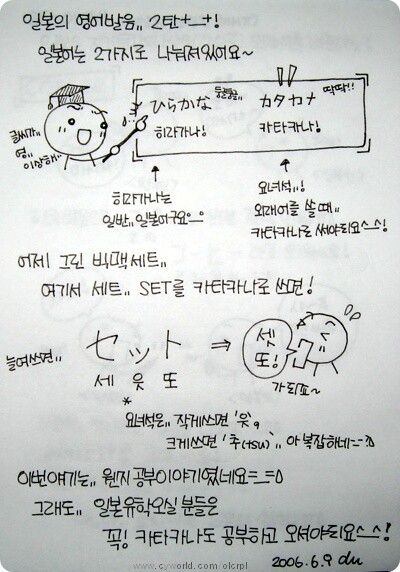 일본의 영어발음,, 2탄+_+!
일본어는 2가지로 나눠져있어요~
글씨가,, 영,, 이상해,,
ひらかな 둥글둥글,, カタカナ 딱딱!!
히라가나! 카타카나!
히라가나는 일반,, 일본어구요
요녀석,,! 외래어를 쓸 때,, 카타카나로 써야되요^_^!
어제 그린 빅맥세트,,
여기서 세트,, SET를 카타카나로 쓰면!
늘여쓰면,, セット ⇒ 셋또!
세 읏 또 가 되죠~
* 요녀석은,, 작게쓰면 '읏',
크게쓰면 '츠(tsu)',, 아 복잡하네
이번얘기는,, 웬지 공부이야기였네요
그래도,, 일본유학오실 분들은
꼭! 카타카나도 공부하고 오셔야되요^_^!
2006.6.9
www.cyworld.com/olcrpl